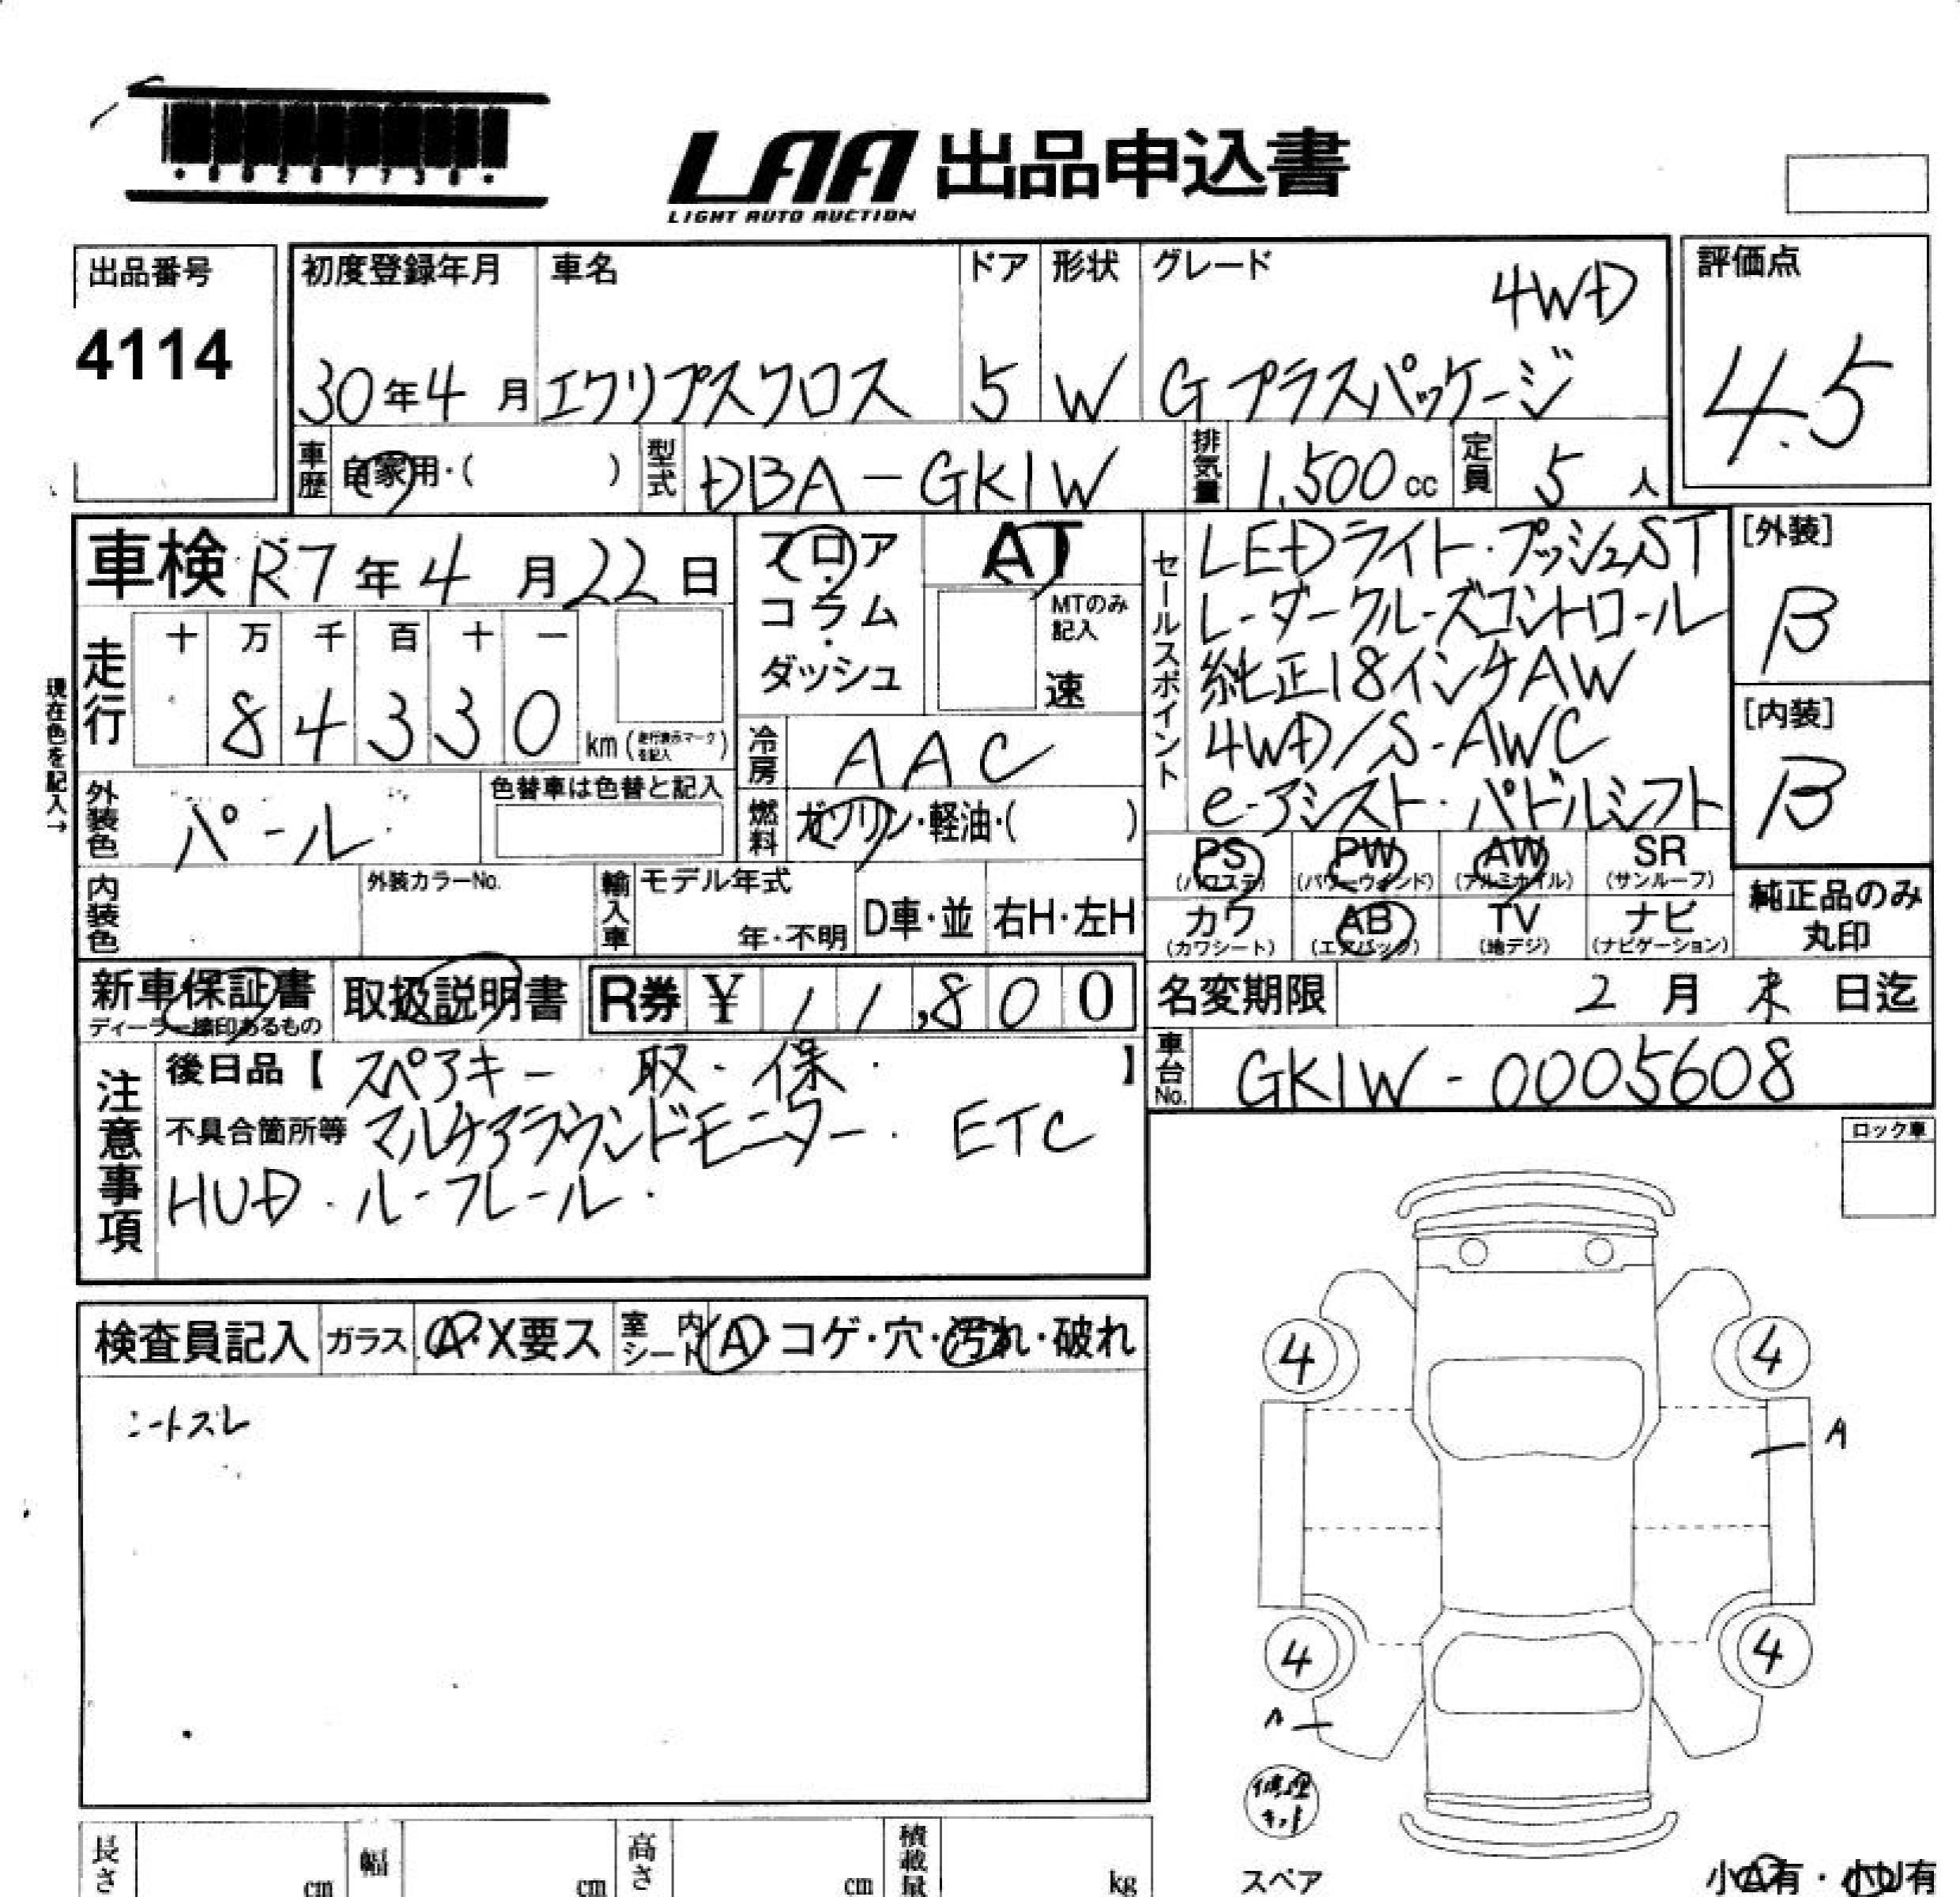 LAA 出品申込書
LIGHT AUTO AUCTION
出品番号
4114
初度登録年月 車名 ドア 形状 グレード 4WD
30年4月 エクリプスクロス 5 W Gプラスパッケージ
評価点
4.5
車歴 自家用・( ) 型式 DBA-GK1W 排気量 1,500cc 定員 5人
車検 R7年4月22日
フロア・コラム・ダッシュ
AT
MTのみ記入
速
走行 十 万 千 百 十 一
84330 km (走行表示マークを記入)
現在色を記入→
冷房 AAC
外装色 パール 色替車は色替と記入
燃料 ガソリン・軽油・( )
内装色 外装カラーNo. 輸入車 モデル年式 年・不明 D車・並 右H・左H
セールスポイント
LEDライト・プッシュST
レーダークルーズコントロール
純正18インチAW
4WD/S-AWC
e-アシスト・パドルシフト
[外装]
B
[内装]
B
PS (パワステ) PW (パワーウィンド) AW (アルミホイル) SR (サンルーフ)
カワ (カワシート) AB (エアバッグ) TV (地デジ) ナビ (ナビゲーション)
純正品のみ丸印
新車保証書 取扱説明書 R券 ¥ 11,800
ディーラー捺印あるもの
名変期限 2月末日迄
車台No. GK1W-0005608
注意事項
後日品【スペアキー 取・保・】
不具合箇所等 マルチアラウンドモニター・ETC
HUD・ルーフレール・
ロック車
検査員記入 ガラス A・X要ス 室内シート A・コゲ・穴・汚れ・破れ
シートスレ
4 4
A
4 4
A
修理キット
スペア
小A有・小U有
長さ cm 幅 cm 高さ cm 積載量 kg